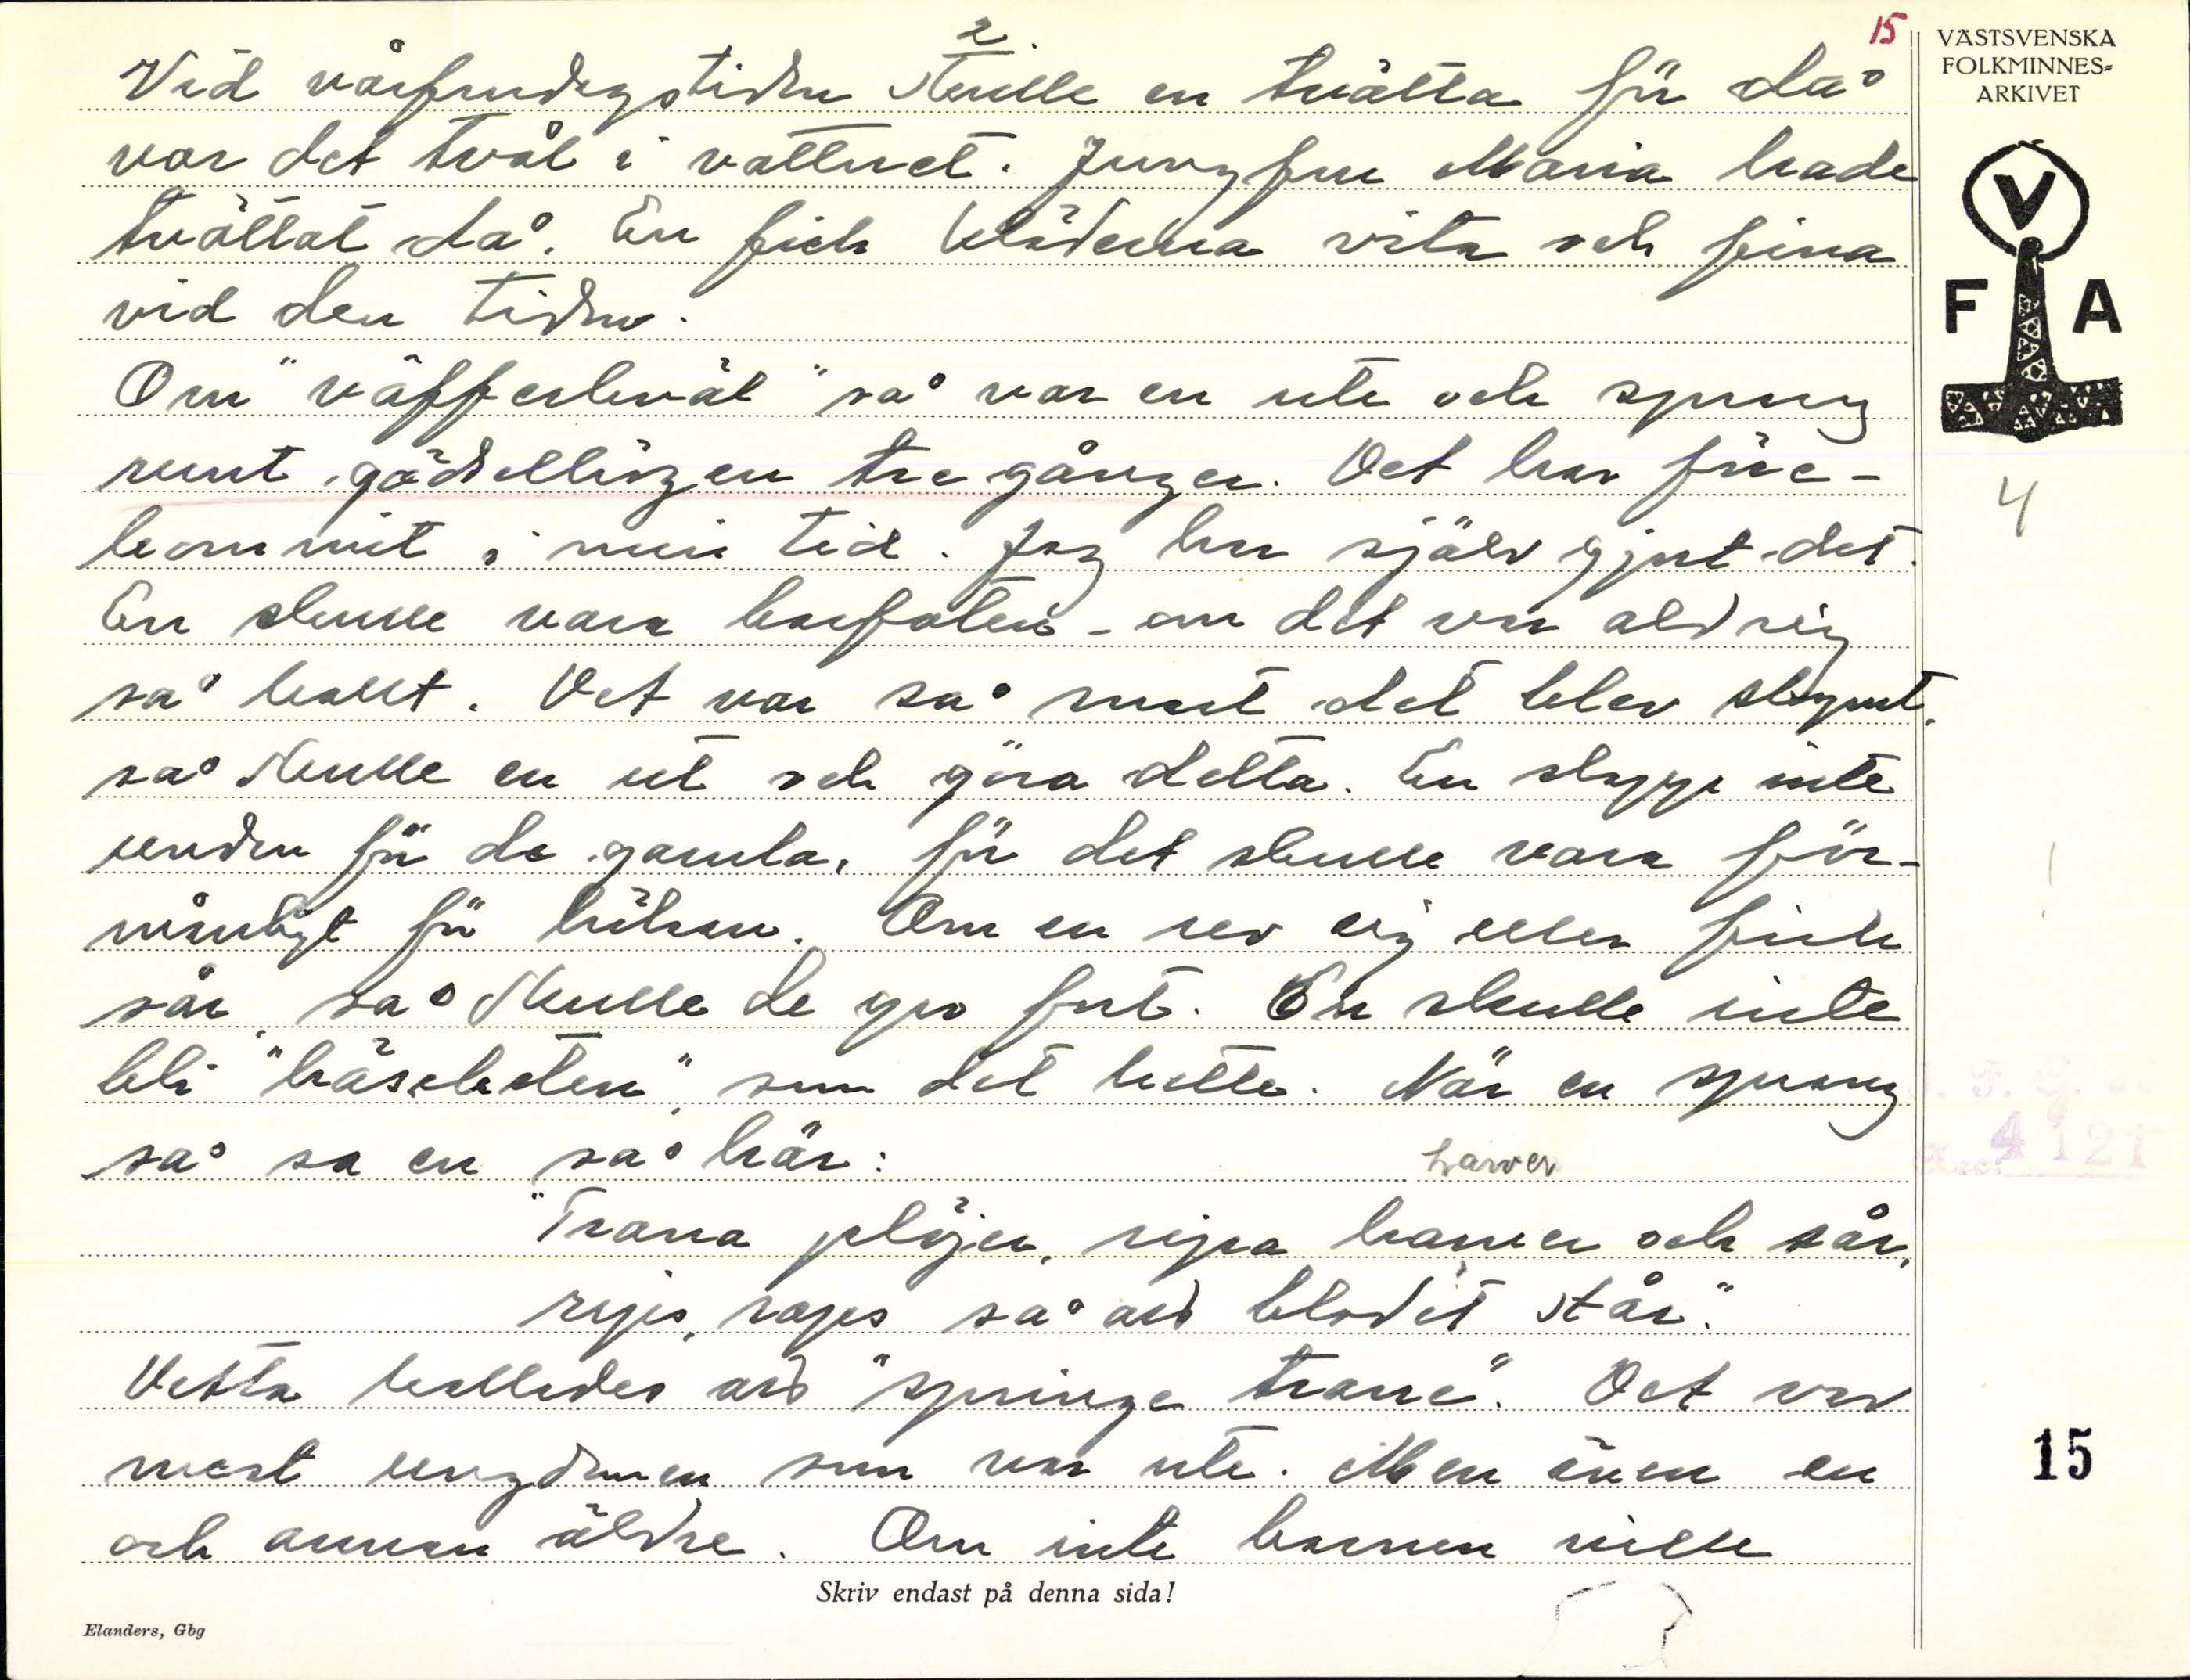 2.
15
VÄSTSVENSKA
FOLKMINNES-
ARKIVET
V
F A
Vid vårfrudagstiden skulle en tvätta för då
var det tvål i vattnet. Jungfru Maria hade
tvättat då. En fick kläderna vita och fina
vid den tiden.
Om "väfferkväl" så var en ute och sprang
runt gödsellingen tre gånger. Det har före-
kommit i min tid. Jag har själv gjort det.
En skulle vara barfoten - om det var aldrig
så kallt. Det var så snart det blev skymt,
så skulle en ut och göra detta. En slapp inte
undan för de gamla, för det skulle vara för-
månligt för hälsan. Om en rev sig eller fick
sår, så skulle de gro fort. En skulle inte
bli "häsebeten", som det hette. När en sprang
så sa en så här:
harver
"Trana plöjer, ripa harver och sår,
ripes, rapes så att blodet står."
Detta kallades att "springe trane". Det var
mest ungdomen som var ute. Men även en
och annan äldre. Om inte barnen ville
4
4121
15
Skriv endast på denna sida!
Elanders, Gbg